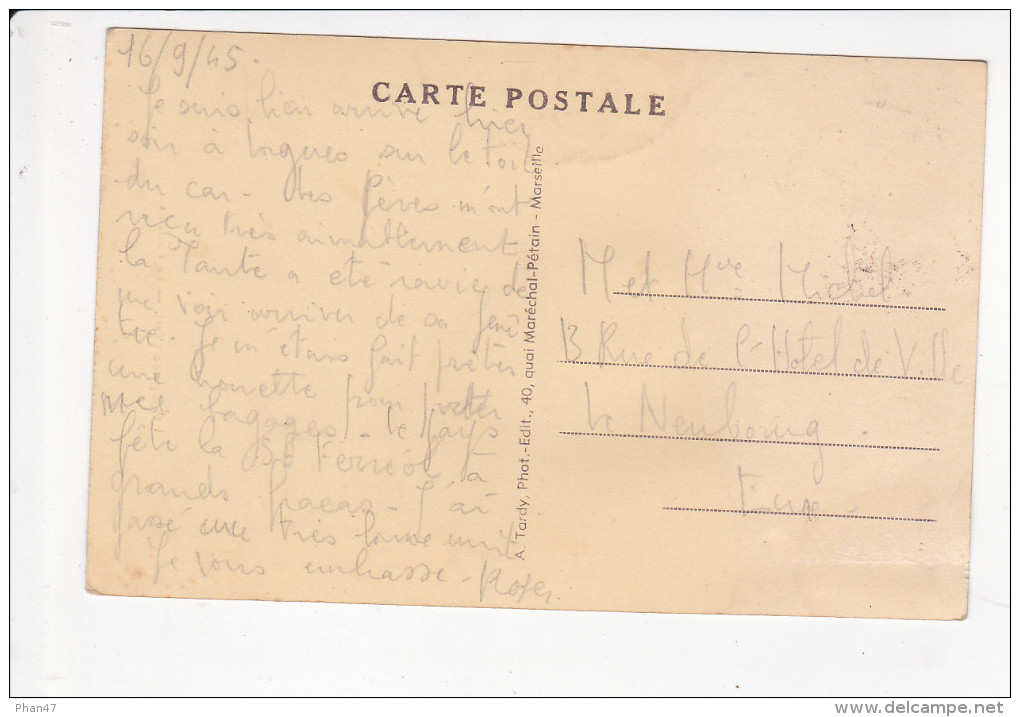 16/9/45.
CARTE POSTALE
Je suis bien arrivé hier
soir à Lorgues sur le toit
du car - les Pères m'ont
reçu très aimablement
la Tante a été ravie de
me voir arriver de sa fenê
tre. Je m'étais fait prêter
une brouette pour porter
mes bagages - le pays
fête la St Ferréol à
grands fracas - J'ai
passé une très bonne nuit
Je vous embrasse - Roger.
A. Tardy, Phot.-Edit., 40, quai Maréchal-Pétain - Marseille
M et Mme Michel
13 Rue de l'Hotel de Ville
Le Neubourg.
Eure.
Phan47
www.delcampe.net